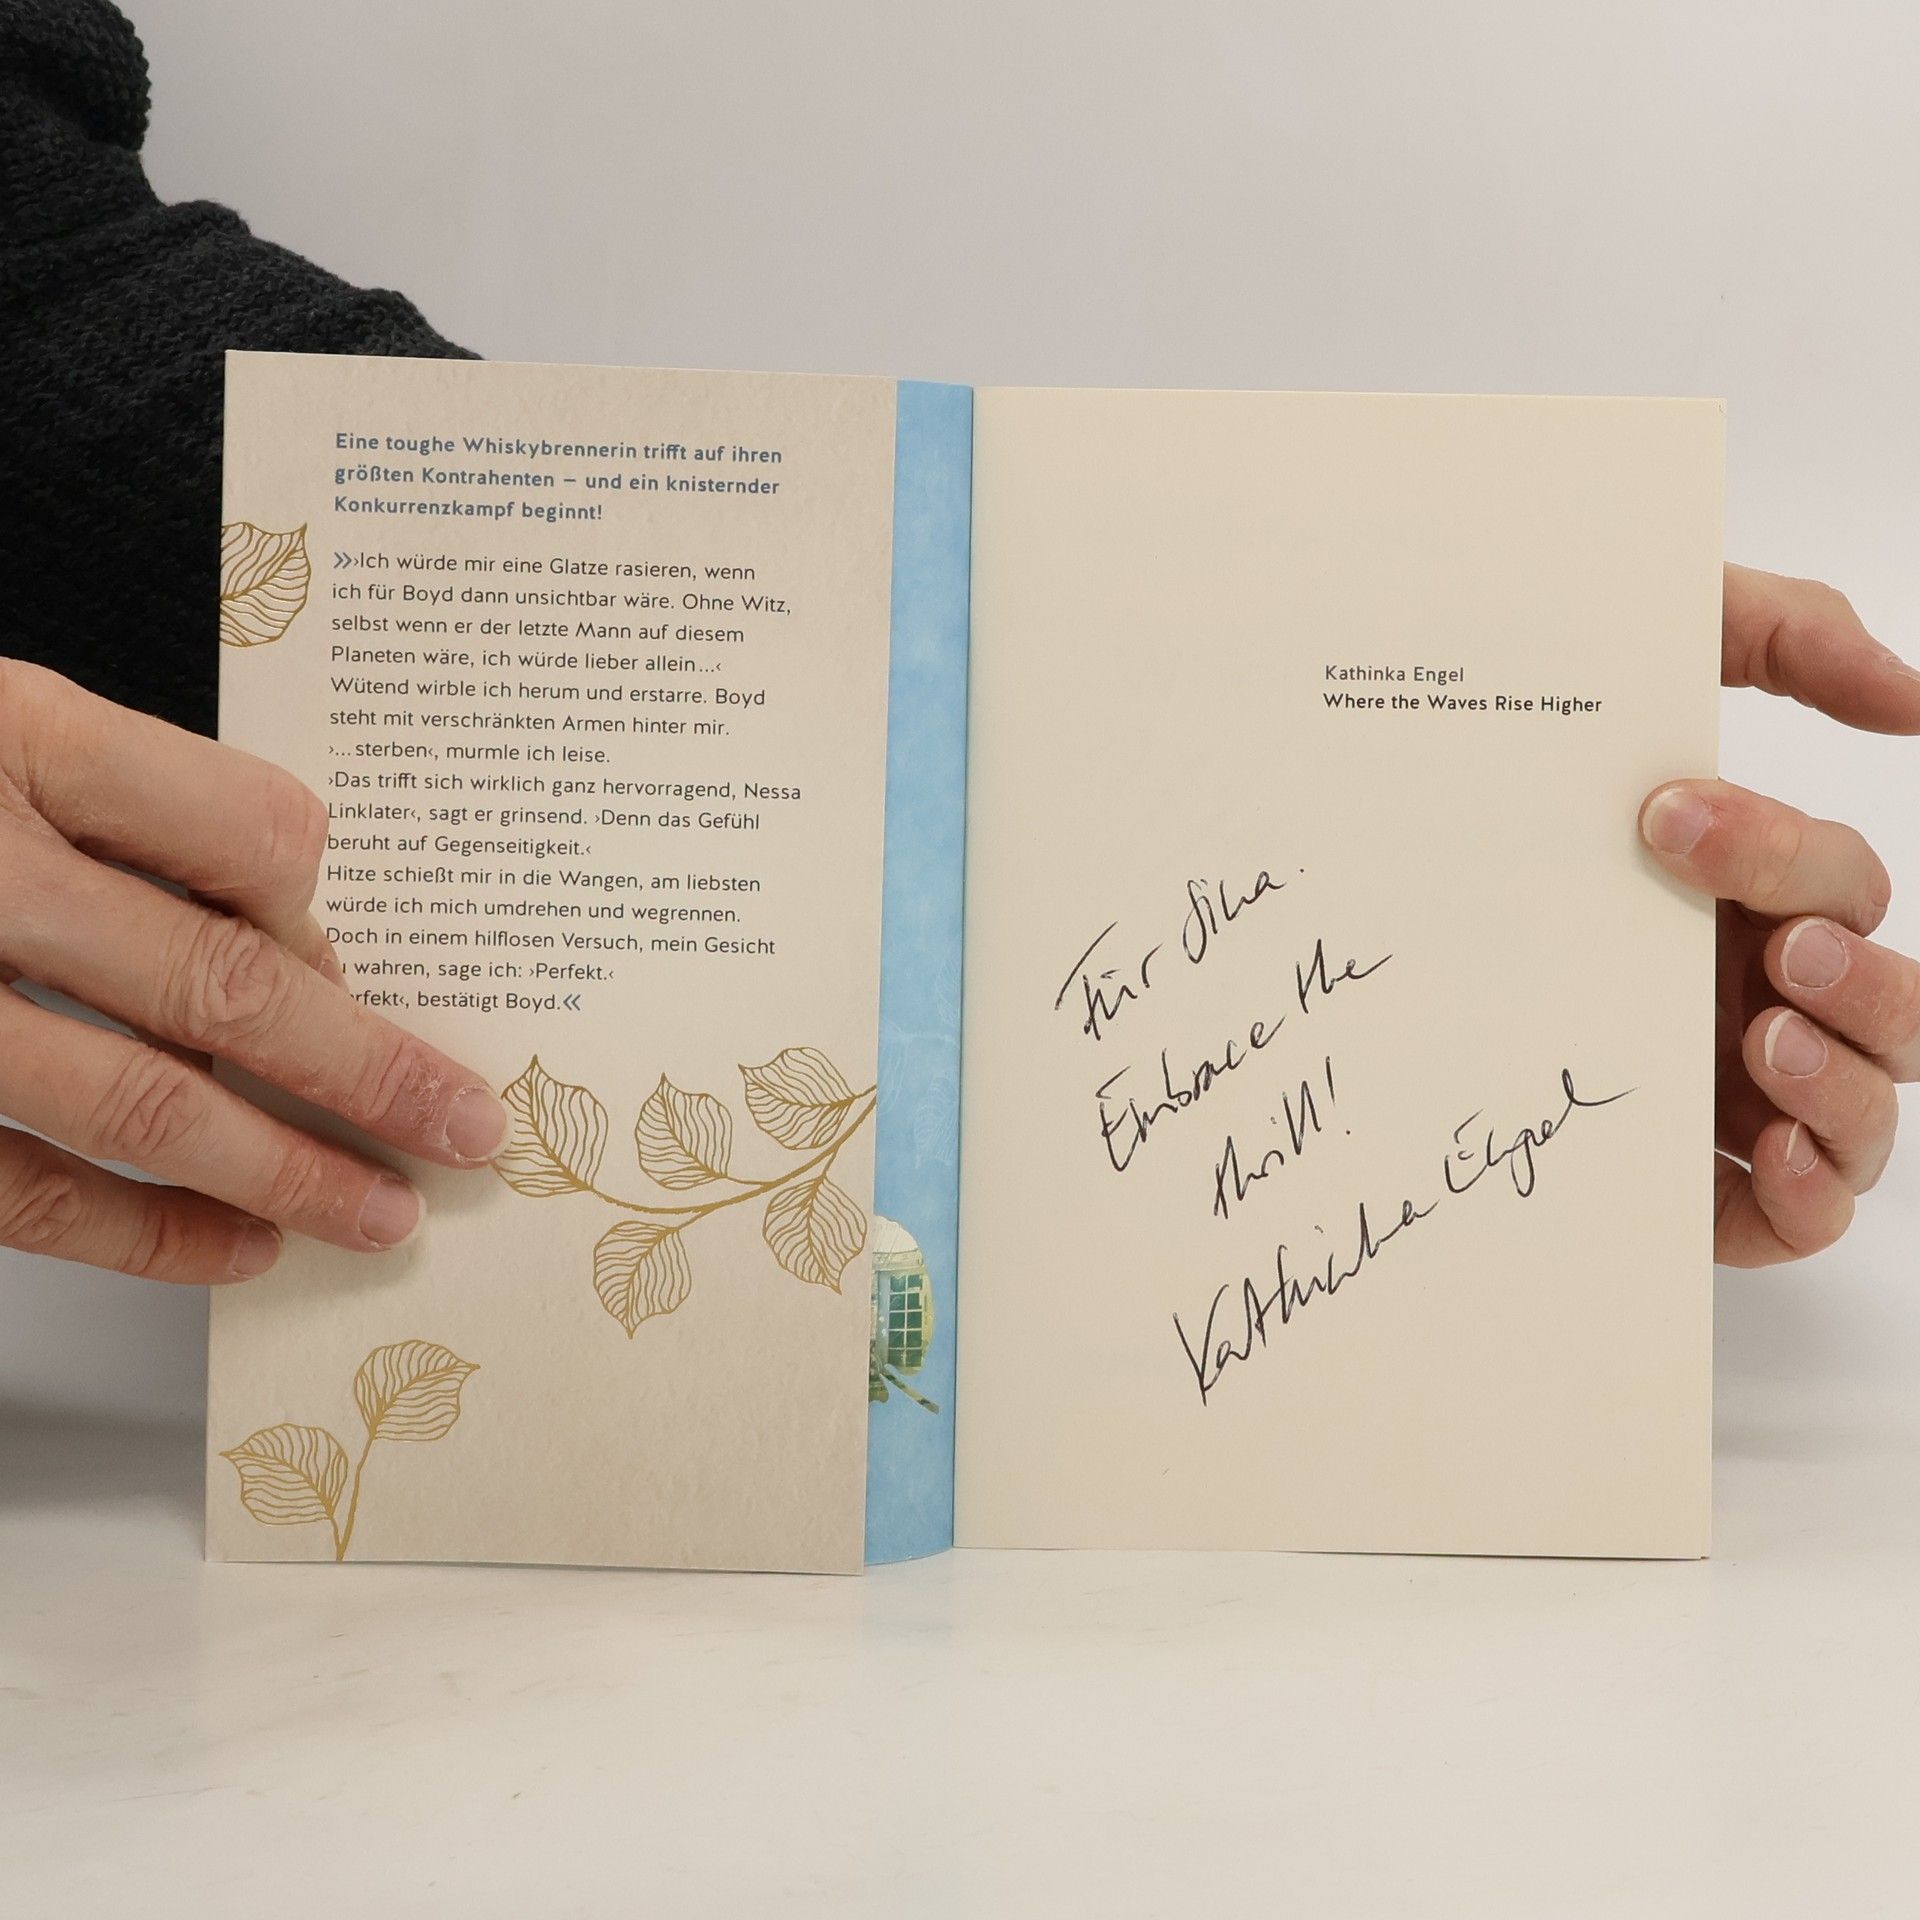 Eine toughe Whiskybrennerin trifft auf ihren
größten Kontrahenten – und ein knisternder
Konkurrenzkampf beginnt!
»›Ich würde mir eine Glatze rasieren, wenn
ich für Boyd dann unsichtbar wäre. Ohne Witz,
selbst wenn er der letzte Mann auf diesem
Planeten wäre, ich würde lieber allein ...‹
Wütend wirble ich herum und erstarre. Boyd
steht mit verschränkten Armen hinter mir.
›... sterben‹, murmle ich leise.
›Das trifft sich wirklich ganz hervorragend, Nessa
Linklater‹, sagt er grinsend. ›Denn das Gefühl
beruht auf Gegenseitigkeit.‹
Hitze schießt mir in die Wangen, am liebsten
würde ich mich umdrehen und wegrennen.
Doch in einem hilflosen Versuch, mein Gesicht
wahren, sage ich: ›Perfekt.‹
rfekt‹, bestätigt Boyd.«
Kathinka Engel
Where the Waves Rise Higher
Für
Embrace the
thrill!
Kathinka Engel